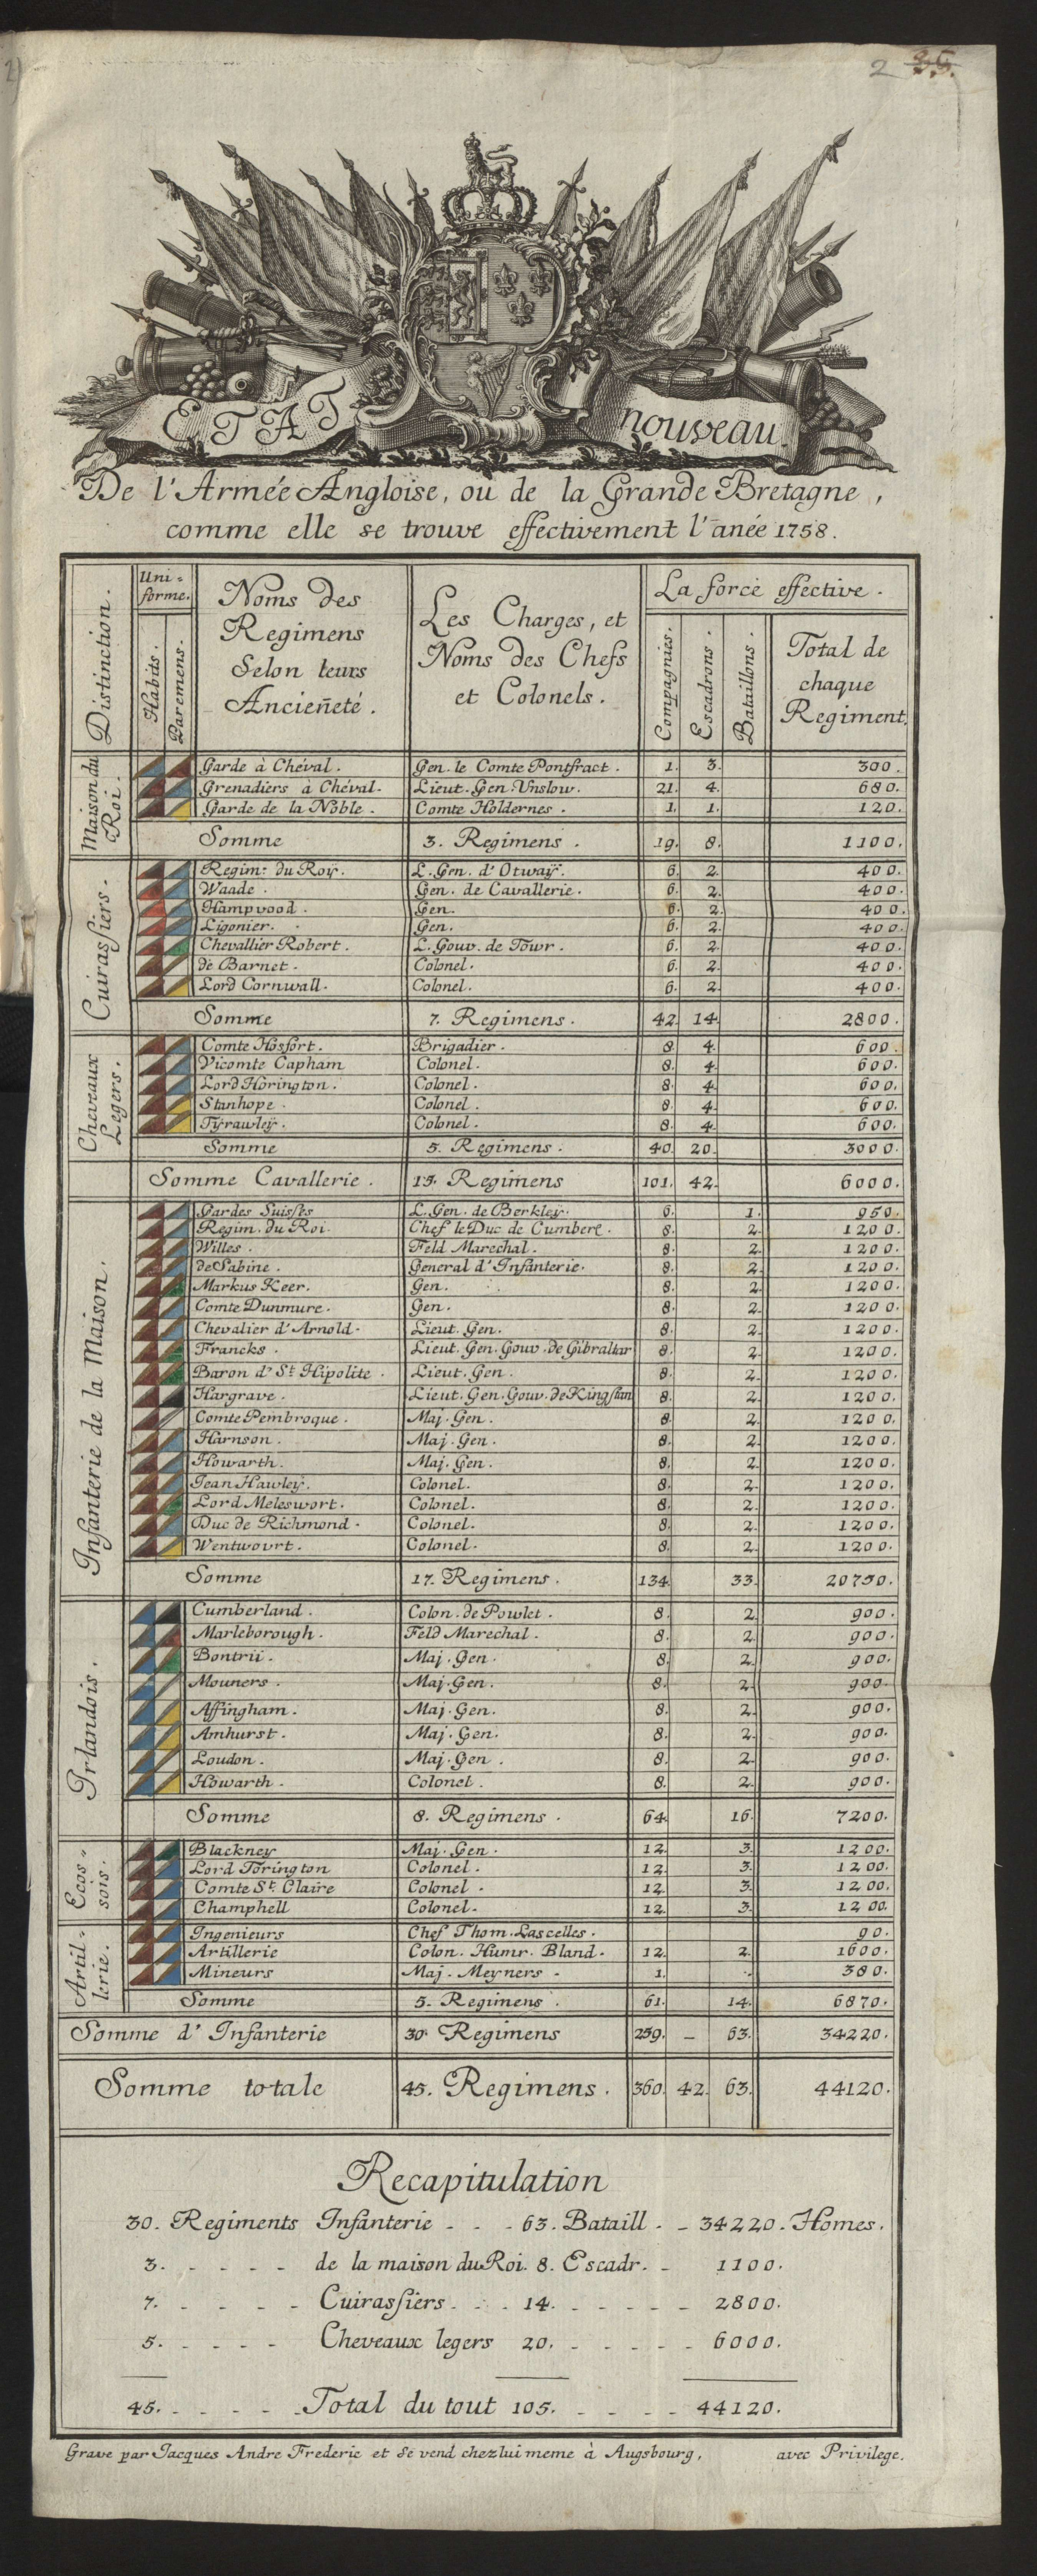 2 35.
ETAT nouveau.
De l'Armée Angloise, ou de la Grande Bretagne,
comme elle se trouve effectivement l'anée 1758.
Distinction.
Uni=
forme.
Habits.
Paremens.
Noms des
Regimens
Selon leurs
Ancieñeté.
Les Charges, et
Noms des Chefs
et Colonels.
La force effective.
Compagnies.
Escadrons.
Bataillons.
Total de
chaque
Regiment.
Maison du
Roi.
Garde à Chéval. Gen. le Comte Pontfract. 1. 3. 300.
Grenadiers à Chéval. Lieut. Gen Unslow. 21. 4. 680.
Garde de la Noble. Comte Holdernes. 1. 1. 120.
Somme 3. Regimens. 19. 8. 1100.
Cuirassiers.
Regim: du Roÿ. L. Gen. d'Otwaÿ. 6. 2. 400.
Waade. Gen. de Cavallerie. 6. 2. 400.
Hampvood. Gen. 6. 2. 400.
Ligonier. Gen. 6. 2. 400.
Chevallier Robert. L. Gouv. de Towr. 6. 2. 400.
de Barnet. Colonel. 6. 2. 400.
Lord Cornwall. Colonel. 6. 2. 400.
Somme 7. Regimens. 42. 14. 2800.
Cheveaux
Legers.
Comte Hosfort. Brigadier. 8. 4. 600.
Vicomte Capham Colonel. 8. 4. 600.
Lord Horington. Colonel. 8. 4. 600.
Stanhope. Colonel. 8. 4. 600.
Tÿrawleÿ. Colonel. 8. 4. 600.
Somme 5. Regimens. 40. 20. 3000.
Somme Cavallerie. 15. Regimens 101. 42. 6000.
Infanterie de la Maison.
Gardes Suisses L. Gen. de Berkley. 6. 1. 950.
Regim. du Roi. Chef le Duc de Cumberl. 8. 2. 1200.
Willes. Feld Marechal. 8. 2. 1200.
de Sabine. General d'Infanterie. 8. 2. 1200.
Markus Keer. Gen. 8. 2. 1200.
Comte Dunmure. Gen. 8. 2. 1200.
Chevalier d'Arnold. Lieut. Gen. 8. 2. 1200.
Francks. Lieut. Gen. Gouv. de Gibraltar 8. 2. 1200.
Baron d'St. Hipolite. Lieut. Gen. 8. 2. 1200.
Hargrave. Lieut. Gen. Gouv. de Kingslan 8. 2. 1200.
Comte Pembroque. Maj. Gen. 8. 2. 1200.
Harnson. Maj. Gen. 8. 2. 1200.
Howarth. Maj. Gen. 8. 2. 1200.
Jean Hawley. Colonel. 8. 2. 1200.
Lord Meleswort. Colonel. 8. 2. 1200.
Duc de Richmond. Colonel. 8. 2. 1200.
Wentwourt. Colonel. 8. 2. 1200.
Somme 17. Regimens. 134. 33. 20750.
Irlandois.
Cumberland. Colon. de Powlet. 8. 2. 900.
Marleborough. Feld Marechal. 8. 2. 900.
Bontrii. Maj. Gen. 8. 2. 900.
Mouners. Maj. Gen. 8. 2. 900.
Affingham. Maj. Gen. 8. 2. 900.
Amhurst. Maj. Gen. 8. 2. 900.
Loudon. Maj. Gen. 8. 2. 900.
Howarth. Colonel. 8. 2. 900.
Somme 8. Regimens. 64. 16. 7200.
Ecos=
sois.
Blackney Maj. Gen. 12. 3. 1200.
Lord Torington Colonel. 12. 3. 1200.
Comte St. Claire Colonel. 12. 3. 1200.
Champhell Colonel. 12. 3. 1200.
Artil=
lerie.
Ingenieurs Chef Thom. Lascelles. 90.
Artillerie Colon. Humr. Bland. 12. 2. 1600.
Mineurs Maj. Meyners. 1. 380.
Somme 5. Regimens. 61. 14. 6870.
Somme d'Infanterie 30. Regimens 259. – 63. 34220.
Somme totale 45. Regimens. 360. 42. 63. 44120.
Recapitulation
30. Regiments Infanterie - - - 63. Bataill. - 34220. Homes.
3. - - - - de la maison du Roi. 8. Escadr. - 1100.
7. - - - - Cuirassiers - - - 14. - - - - - 2800.
5. - - - - Cheveaux legers 20. - - - - - 6000.
45. - - - - Total du tout 105. - - - - 44120.
Grave par Jacques Andre Frederic et se vend chez lui meme à Augsbourg, avec Privilege.